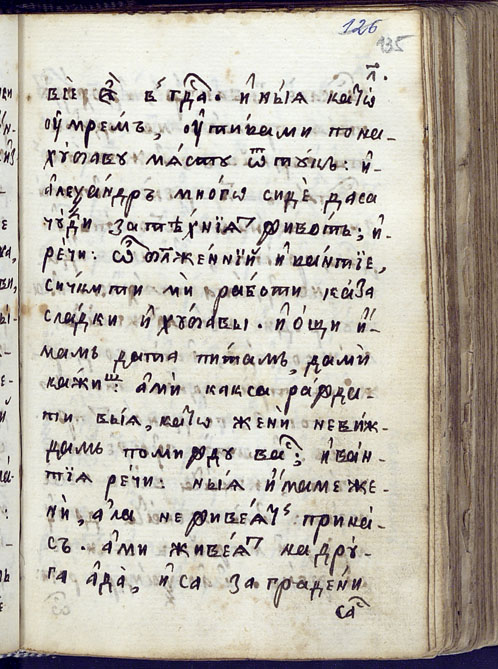 126
135
вїе е҆ в тдⷭ҇а. и҆ ны́ѧ като̀
ᲂу҆мре́мъ, ᲂу҆тива́ми по на-
ху́баву мѧ́сту ѿ ту́къ: и҆-
а҆леѯа́ндръ мно́гѡ сидѐ даса
чꙋ́ди за тѣ́хнїѧ живо́тъ; и҆-
ре́чи: ѽ бл҃же́ннїй и҆ва́нтїе,
сичи́ти мѝ ра́боти ка́за
сла́дки и҆ ху́бавы. и҆ о́щи и҆-
мамъ дата пи́тамъ, да мѝ
ка́жишъ: а҆мѝ какса ра́жда-
ти вы́ѧ, като̀ женѝ неви́ж-
дамъ поми́жду ва́съ; и҆ва́н-
тїѧ ре́чи: ны́ѧ и҆́маме же-
нѝ, а҆ла не живе́ѧтъ при на́-
съ. а҆ми живе́ѧтъ на дрꙋ́-
га а҆да̀, и҆ са загради́ни
саⷭ҇